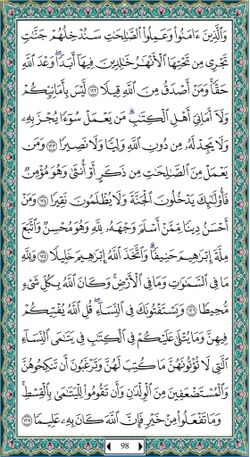 وَالَّذِينَ ءَامَنُوا وَعَمِلُوا الصَّالِحَاتِ سَنُدْخِلُهُمْ جَنَّاتٍ
تَجْرِي مِن تَحْتِهَا الْأَنْهَارُ خَالِدِينَ فِيهَا أَبَدًا وَعْدَ اللَّهِ
حَقًّا وَمَنْ أَصْدَقُ مِنَ اللَّهِ قِيلًا ١٢٢ لَّيْسَ بِأَمَانِيِّكُمْ
وَلَا أَمَانِيِّ أَهْلِ الْكِتَابِ مَن يَعْمَلْ سُوءًا يُجْزَ بِهِ
وَلَا يَجِدْ لَهُ مِن دُونِ اللَّهِ وَلِيًّا وَلَا نَصِيرًا ١٢٣ وَمَن
يَعْمَلْ مِنَ الصَّالِحَاتِ مِن ذَكَرٍ أَوْ أُنثَى وَهُوَ مُؤْمِنٌ
فَأُولَئِكَ يَدْخُلُونَ الْجَنَّةَ وَلَا يُظْلَمُونَ نَقِيرًا ١٢٤ وَمَنْ
أَحْسَنُ دِينًا مِّمَّنْ أَسْلَمَ وَجْهَهُ لِلَّهِ وَهُوَ مُحْسِنٌ وَاتَّبَعَ
مِلَّةَ إِبْرَاهِيمَ حَنِيفًا وَاتَّخَذَ اللَّهُ إِبْرَاهِيمَ خَلِيلًا ١٢٥ وَلِلَّهِ
مَا فِي السَّمَاوَاتِ وَمَا فِي الْأَرْضِ وَكَانَ اللَّهُ بِكُلِّ شَيْءٍ
مُّحِيطًا ١٢٦ وَيَسْتَفْتُونَكَ فِي النِّسَاءِ قُلِ اللَّهُ يُفْتِيكُمْ
فِيهِنَّ وَمَا يُتْلَى عَلَيْكُمْ فِي الْكِتَابِ فِي يَتَامَى النِّسَاءِ
الَّتِي لَا تُؤْتُونَهُنَّ مَا كُتِبَ لَهُنَّ وَتَرْغَبُونَ أَن تَنكِحُوهُنَّ
وَالْمُسْتَضْعَفِينَ مِنَ الْوِلْدَانِ وَأَن تَقُومُوا لِلْيَتَامَى بِالْقِسْطِ
وَمَا تَفْعَلُوا مِنْ خَيْرٍ فَإِنَّ اللَّهَ كَانَ بِهِ عَلِيمًا ١٢٧
98